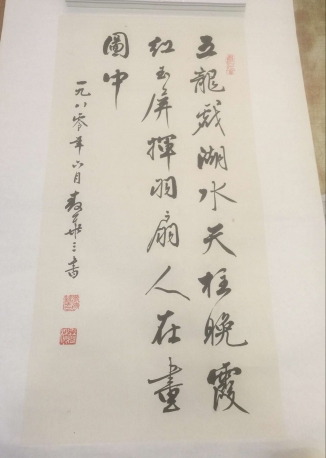 五龍戲湖水天柱晚霞
紅玉屏揮羽扇人在畫
圖中
一九八零年六月壽華三書